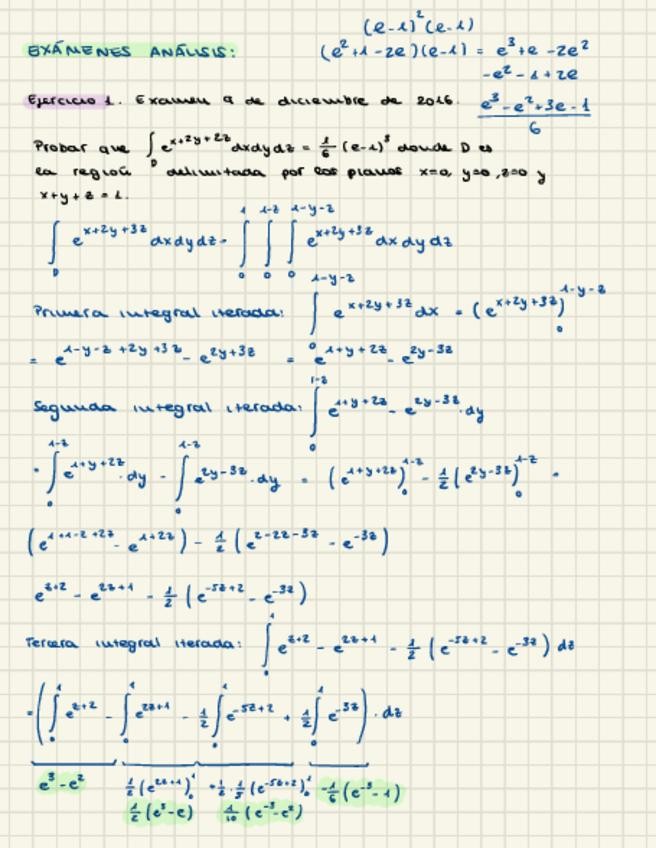 (e-1)²(e-1)
EXÁMENES ANÁLISIS:
(e²+1-2e)(e-1) = e³+e-2e²
-e²-1+2e
Ejercicio 1. Examen 9 de diciembre de 2016.
e³-e²+3e-1
6
Probar que ∫_D e^(x+2y+3z) dxdydz = 1/6 (e-1)³ donde D es
la región delimitada por los planos x=0, y=0, z=0 y
x+y+z=1.
∫_D e^(x+2y+3z) dxdydz = ∫_0^1 ∫_0^(1-z) ∫_0^(1-y-z) e^(x+2y+3z) dxdydz
Primera integral iterada: ∫_0^(1-y-z) e^(x+2y+3z) dx = (e^(x+2y+3z))_0^(1-y-z)
= e^(1-y-z+2y+3z) - e^(2y+3z) = e^(1+y+2z) - e^(2y-3z)
Segunda integral iterada: ∫_0^(1-z) e^(1+y+2z) - e^(2y-3z) · dy
= ∫_0^(1-z) e^(1+y+2z) · dy - ∫_0^(1-z) e^(2y-3z) · dy = (e^(1+y+2z))_0^(1-z) - 1/2 (e^(2y-3z))_0^(1-z) =
(e^(1+1-z+2z) - e^(1+2z)) - 1/2 (e^(2-2z-3z) - e^(-3z))
e^(z+2) - e^(2z+1) - 1/2 (e^(-5z+2) - e^(-3z))
Tercera integral iterada: ∫_0^1 e^(z+2) - e^(2z+1) - 1/2 (e^(-5z+2) - e^(-3z)) dz
= (∫_0^1 e^(z+2) - ∫_0^1 e^(2z+1) - 1/2 ∫_0^1 e^(-5z+2) + 1/2 ∫_0^1 e^(-3z)) · dz
e³-e² 1/2 (e^(2z+1))_0^1 +1/2 · 1/5 (e^(-5z+2))_0^1 -1/6 (e^(-3)-1)
1/2 (e³-e) 1/10 (e^(-3)-e²)